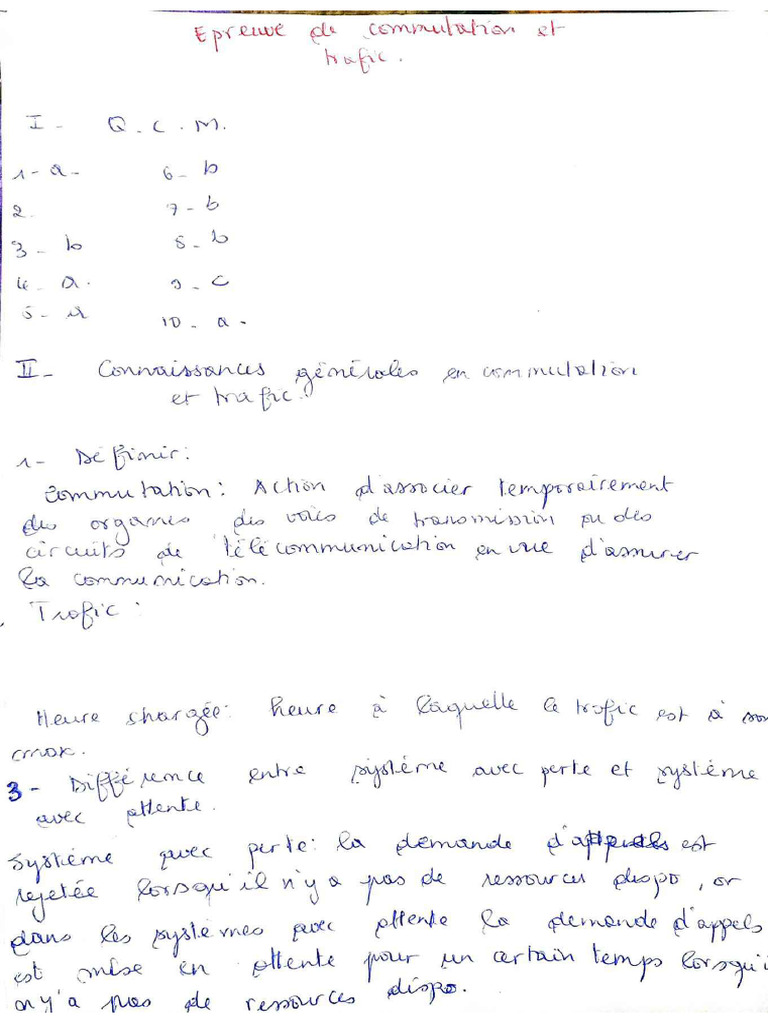 Epreuve de commutation et
trafic.
I - Q.C.M.
1- a- 6- b
2. 7- b
3- b 8- b
4- a. 9- c
5- a 10- a-
II- Connaissances générales en commutation
et trafic.
1- Définir:
Commutation: Action d'associer temporairement
des organes des voies de transmission ou des
circuits de télécommunication en vue d'assurer
la communication.
Trafic:
Heure chargée: heure à laquelle le trafic est à son
max.
3- Différence entre système avec perte et système
avec attente.
Système avec perte: la demande d'appels est
rejetée lorsqu'il n'y a pas de ressources dispo, or
dans les systèmes avec attente la demande d'appels
est mise en attente pour un certain temps lorsqu'i
n'y'a pas de ressources dispo.